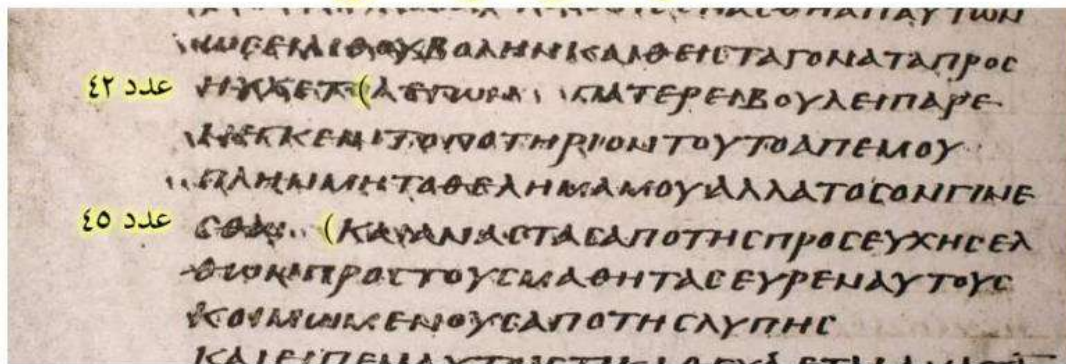 ΑΠΑΥΤΩΝ
ΩCΕΙΛΙΘΟΥΒΟΛΗΝΚΑΙΘΕΙCΤΑΓΟΝΑΤΑΠΡΟC
عدد ٤٢ ΗΥΧΕΤ(ΛΕΓΩΝ ΠΑΤΕΡΕΙΒΟΥΛΕΙΠΑΡΕ
ΝΕΓΚΕΝΤΟΠΟΤΗΡΙΟΝΤΟΥΤΟΑΠΕΜΟΥ
ΠΛΗΝΜΗΤΟΘΕΛΗΜΑΜΟΥΑΛΛΑΤΟCΟΝΓΙΝΕ
عدد ٤٥ CΘΩ (ΚΑΙΑΝΑCΤΑCΑΠΟΤΗCΠΡΟCΕΥΧΗCΕΛ
ΘΩΝΠΡΟCΤΟΥCΜΑΘΗΤΑCΕΥΡΕΝΑΥΤΟΥC
ΚΟΙΜΩΜΕΝΟΥCΑΠΟΤΗCΛΥΠΗC
ΚΑΙΕΙΠΕΝΑΥΤΟΙC